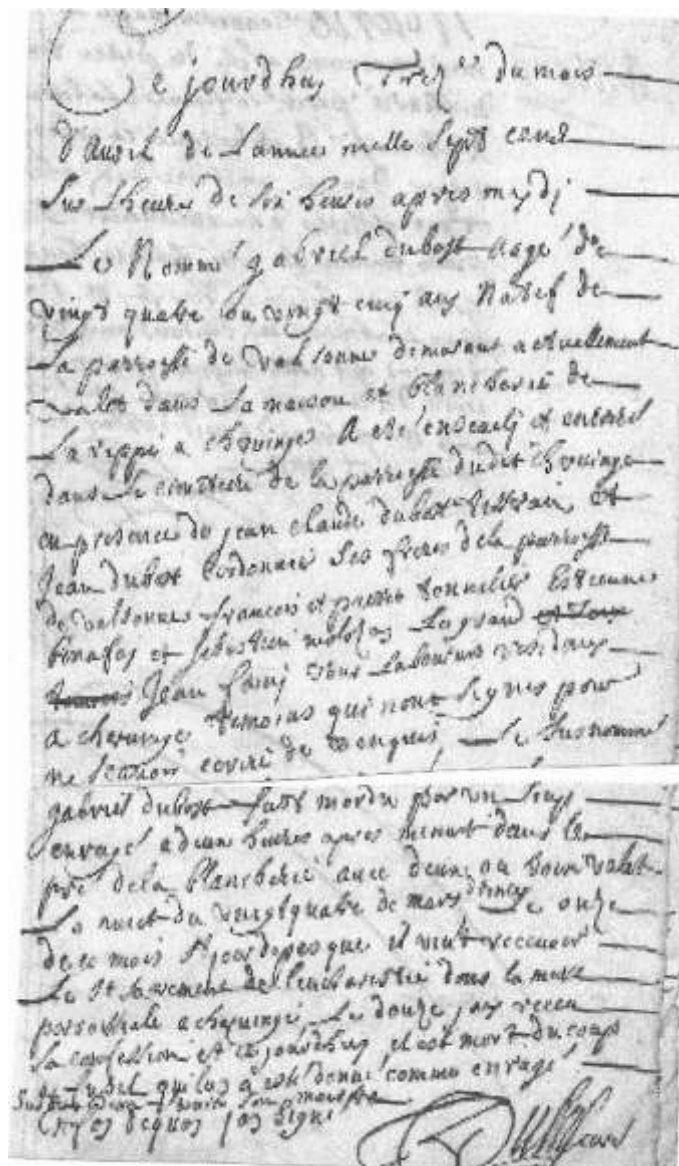 Ce jourdhuy Trez.e du mois
d'Avril de L'annee mille Sept cens
Sur L'heure de six heures apres mydj
Le Nommé gabriel dubost aagé de
vingt quatre ou vingt cinq ans Natif de
La parroisse de valsonne demeurant actuellement
valet dans La maison et blancherie de
La rippe a chevinge A esté ensevely et enterré
dans Le cimetiere de la parroisse dudit chevinge
en presence de jean claude dubost et
Jean dubost Cordonnier Ses freres de la parroisse
de valsonne francois et pierre tonnelier Estienne
et Sebastien Le grand
Jean tous Laboureurs residans
a chevinge temoins qui n'ont Signés pour
ne scavoir ecrire de ce enquis Le Susnommé
gabriel dubost fust mordu par un Loup
enragé a deux heures apres minuit dans Le
pré de la blancherie avec deux ou trois valets
La nuict du vingtquatre de mars Le onze
de ce mois St jour de pasque il vint recevoir
Le St Sacrement de l'eucharistie dans la
parroissiale a chevinge, Le douze jay receu
Sa confession et ce jourdhuy il est mort du coup
de fusil qui luy a esté donné comme enragé
dans Son
En foy dequoy jay Signé